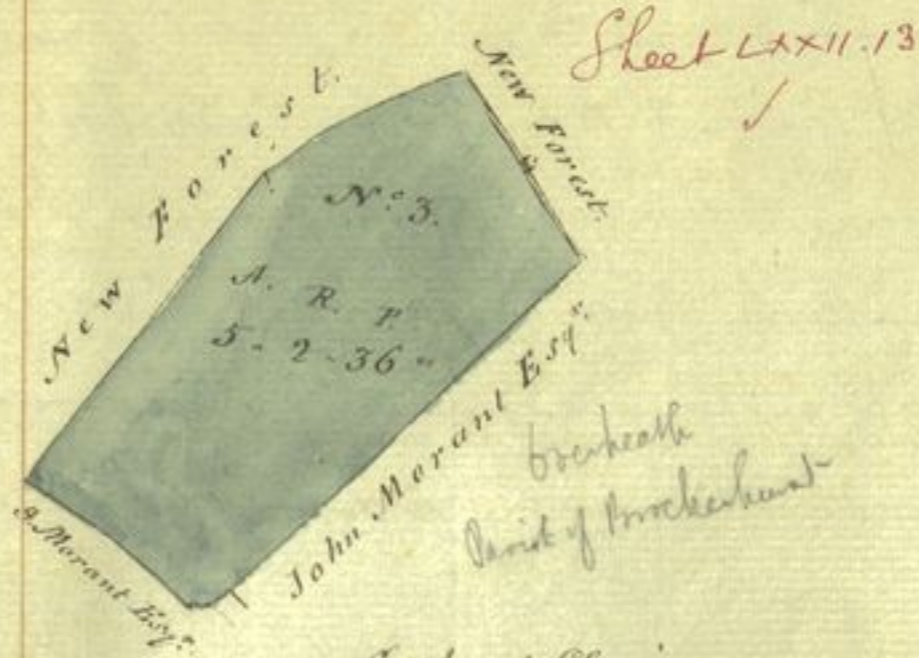 Sheet LXXII.13
New Forest.
New Forest.
No. 3.
A. R. P.
5 - 2 - 36 "
John Morant Esqr.
J. Morant Esqr.
Overheath
Parish of Brockenhurst